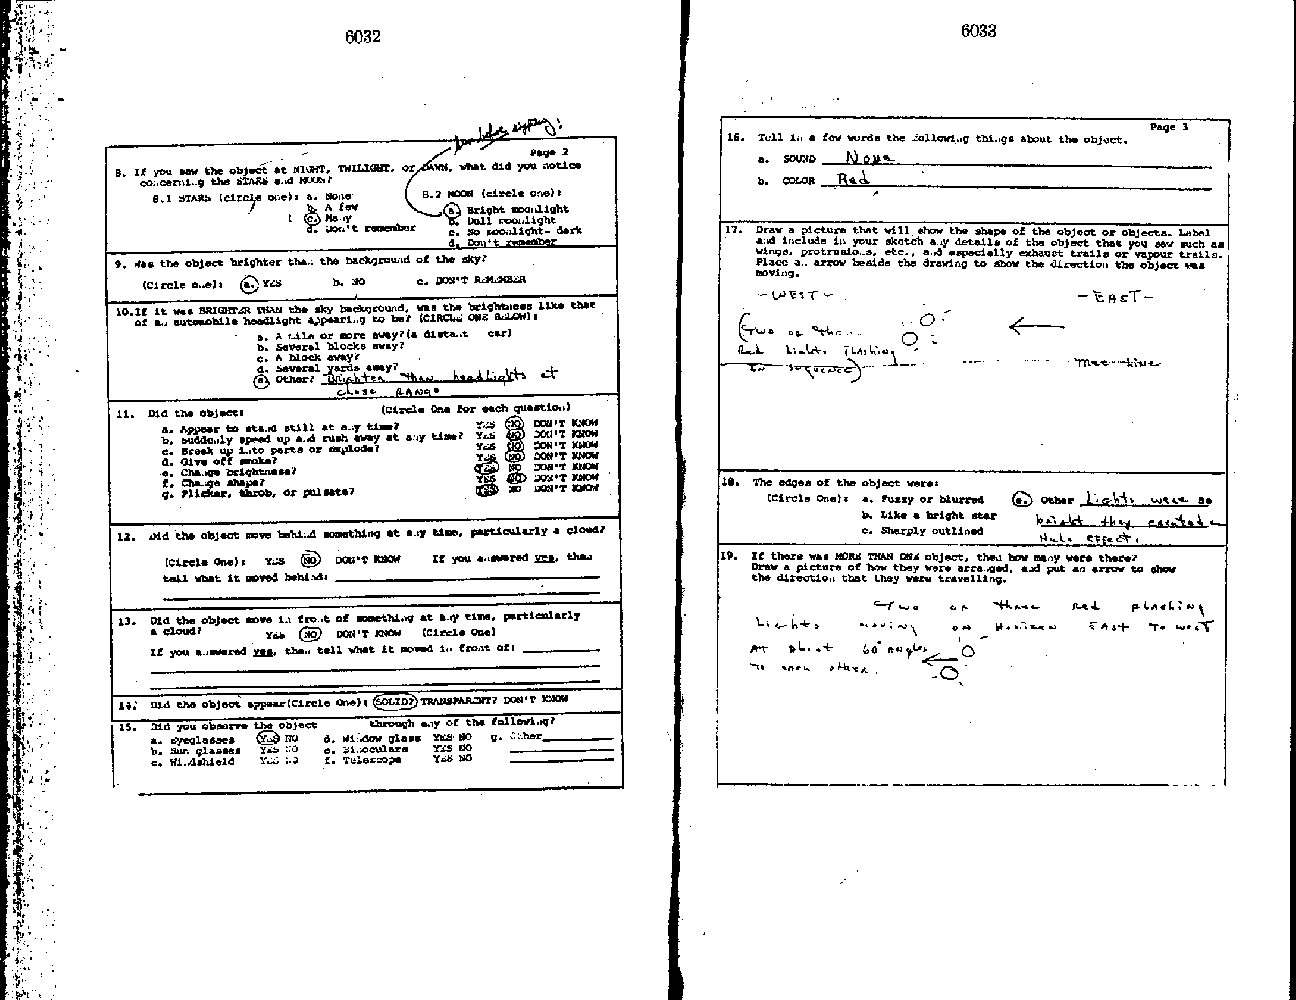 6032
Page 2
8. If you saw the object at NIGHT, TWILIGHT, or DAWN, what did you notice
concerning the STARS and MOON?
8.1 STARS (circle one): a. None
b. A few
c. Many
d. Don't remember
8.2 MOON (circle one):
a. Bright moonlight
b. Dull moonlight
c. No moonlight- dark
d. Don't remember
9. Was the object brighter than the background of the sky?
(Circle one): a. YES b. NO c. DON'T REMEMBER
10. If it was BRIGHTER THAN the sky background, was the brightness like that
of an automobile headlight appearing to be? (CIRCLE ONE BELOW):
a. A mile or more away? (a distant car)
b. Several blocks away?
c. A block away?
d. Several yards away?
e. Other? Brighter than headlights at
close RANGE
11. Did the object: (Circle One for each question)
a. Appear to stand still at any time? YES NO DON'T KNOW
b. Suddenly speed up and rush away at any time? YES NO DON'T KNOW
c. Break up into parts or explode? YES NO DON'T KNOW
d. Give off smoke? YES NO DON'T KNOW
e. Change brightness? YES NO DON'T KNOW
f. Change shape? YES NO DON'T KNOW
g. Flicker, throb, or pulsate? YES NO DON'T KNOW
12. Did the object move behind something at any time, particularly a cloud?
(Circle One): YES NO DON'T KNOW If you answered yes, then
tell what it moved behind:
13. Did the object move in front of something at any time, particularly
a cloud? YES NO DON'T KNOW (Circle One)
If you answered yes, then tell what it moved in front of:
14. Did the object appear(Circle One): SOLID? TRANSPARENT? DON'T KNOW
15. Did you observe the object through any of the following?
a. Eyeglasses YES NO d. Window glass YES NO g. Other
b. Sun glasses YES NO e. Binoculars YES NO
c. Windshield YES NO f. Telescope YES NO
6033
Page 3
16. Tell in a few words the following things about the object.
a. SOUND None
b. COLOR Red
17. Draw a picture that will show the shape of the object or objects. Label
and include in your sketch any details of the object that you saw such as
wings, protrusions, etc., and especially exhaust trails or vapour trails.
Place an arrow beside the drawing to show the direction the object was
moving.
- WEST - - EAST -
(Two or three
Red Lights Flashing
In sequence)
Tree-line
18. The edges of the object were:
(Circle One): a. Fuzzy or blurred e. Other Lights were so
b. Like a bright star bright they created a
c. Sharply outlined Halo effect.
19. If there was MORE THAN ONE object, then how many were there?
Draw a picture of how they were arranged, and put an arrow to show
the direction that they were travelling.
Two or three red flashing
Lights moving on Horizon EAST To WEST
AT about 60° angles
to each other.